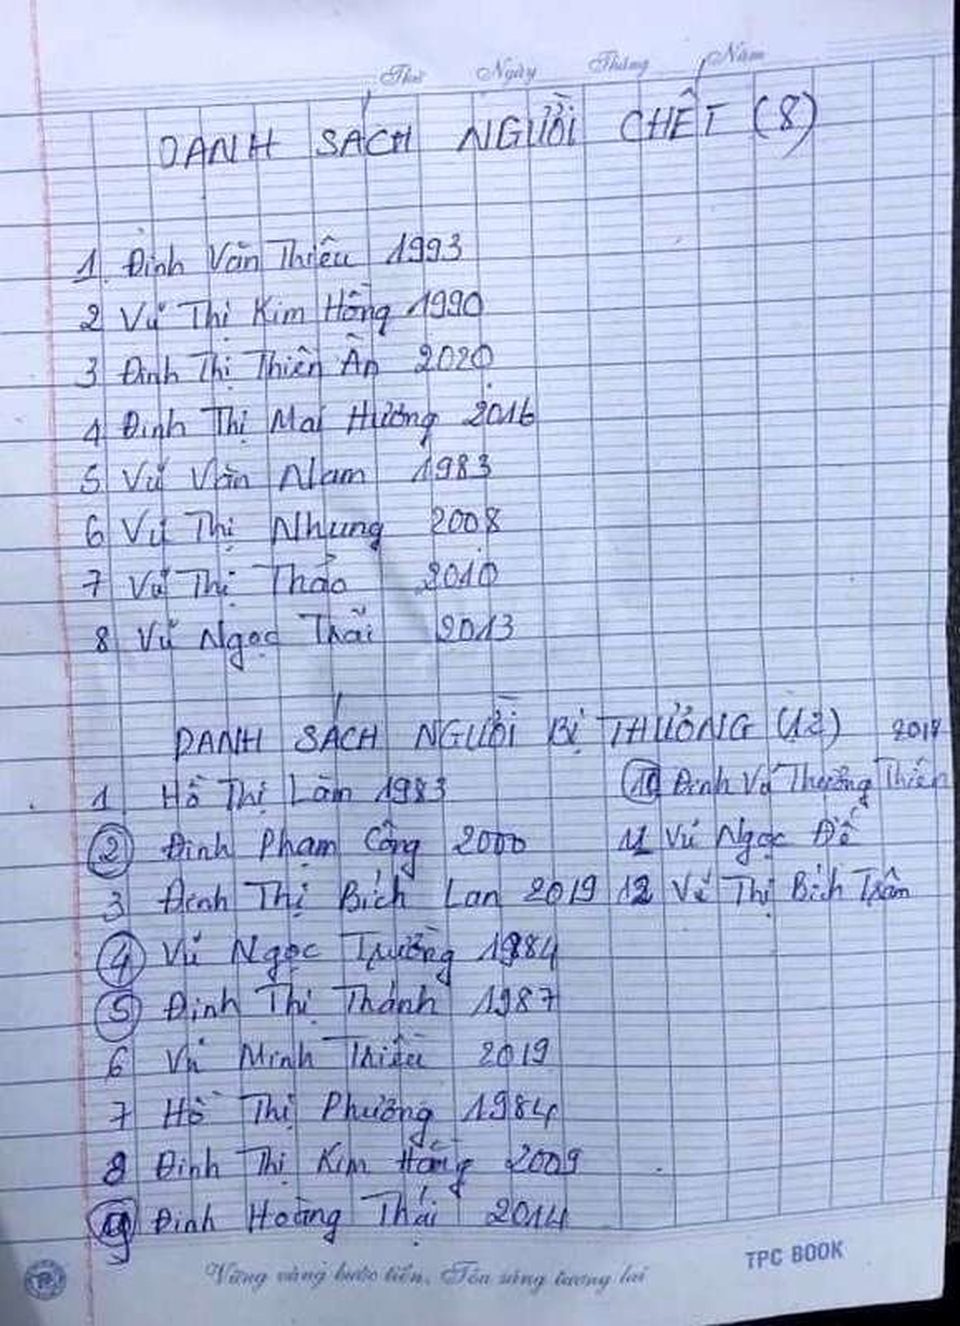 Thứ Ngày Tháng Năm
DANH SÁCH NGƯỜI CHẾT (8)
1 Đinh Văn Thiêu 1993
2 Vũ Thị Kim Hồng 1990
3 Đinh Thị Thiên Ân 2020
4 Đinh Thị Mai Hương 2016
5 Vũ Văn Nam 1983
6 Vũ Thị Nhung 2008
7 Vũ Thị Thảo 2010
8 Vũ Ngọc Thái 2013
DANH SÁCH NGƯỜI BỊ THƯƠNG (12)
1 Hồ Thị Làm 1983
2 Đinh Phạm Công 2000
3 Đinh Thị Bích Lan 2019
4 Vũ Ngọc Trường 1984
5 Đinh Thị Thánh 1987
6 Vũ Minh 2019
7 Hồ Thị Phương 1984
8 Đinh Thị Kim Hồng 2009
9 Đinh Hoàng Thái 2014
10 Đinh Vũ Thường Thiên
11 Vũ Ngọc Đô
12 Vũ Thị Bích Trâm
Vững vàng bước tiến, Tỏa sáng tương lai
TPC BOOK